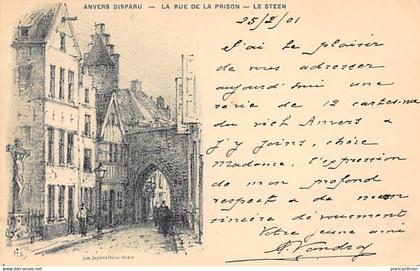 ANVERS DISPARU — LA RUE DE LA PRISON — LE STEEN
25/2/01
J'ai le plaisir
de vous adresser
aujourd'hui une
série de 12 cartes-vues
du vieil Anvers &
j'y joins, chère
Madame, l'expression
de mon profond
respect & de mon
sincère dévouement
Votre jeune ami